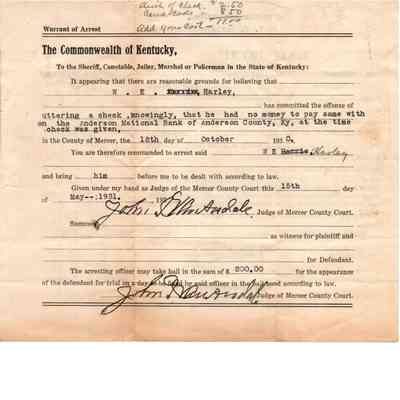 Amt of Check $ 2.50
Court Costs 8.50
11.00
Add your cost
Warrant of Arrest
The Commonwealth of Kentucky,
To the Sheriff, Constable, Jailer, Marshal or Policeman in the State of Kentucky:
It appearing that there are reasonable grounds for believing that
W. E. Harris, Harley,
has committed the offense of
uttering a check ,knowingly, that he had no money to pay same with
on the Anderson National Bank of Anderson County, Ky, at the time
check was given,
in the County of Mercer, the 12th day of October 1930.
You are therefore commanded to arrest said W E Harris, Harley
and bring him before me to be dealt with according to law.
Given under my hand as Judge of the Mercer County Court this 15th day
of May--:1931. 19
Judge of Mercer County Court.
Summon
as witness for plaintiff and
for Defendant.
The arresting officer may take bail in the sum of $ 200.00 for the appearance
of the defendant for trial on a day to be fixed by said officer in the bail bond according to law.
Judge of Mercer County Court.